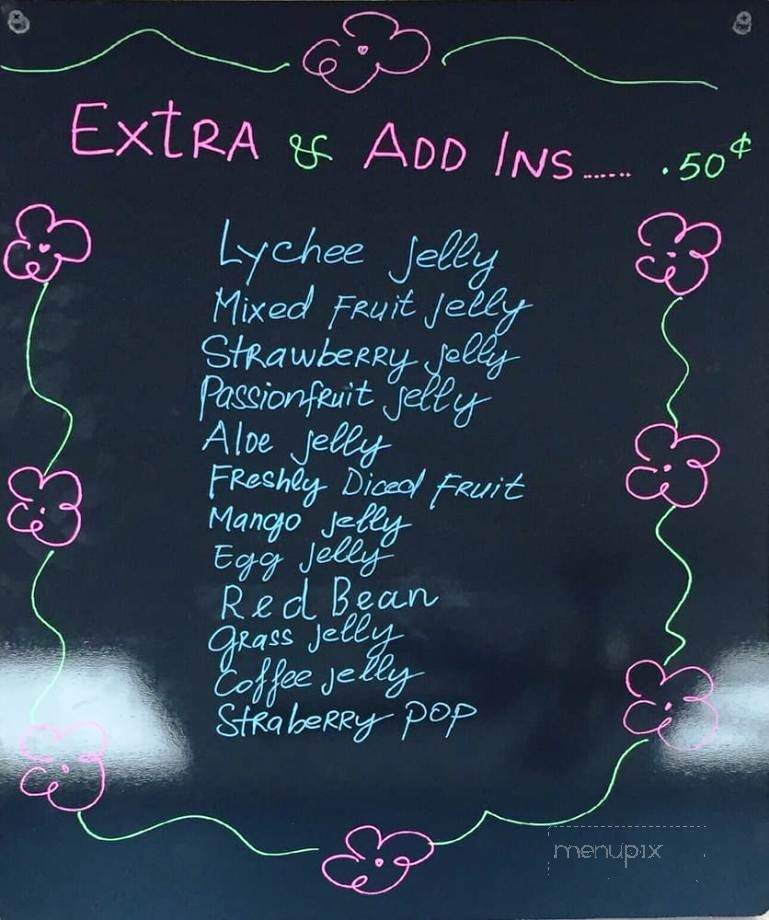 ExtRA & ADD INS...... .50¢
Lychee jelly
Mixed FRuit jelly
StRawbeRRy jelly
PassionfRuit jelly
Aloe jelly
FReshly Diced FRuit
Mango jelly
Egg jelly
Red Bean
gRass jelly
Coffee jelly
StRabeRRy POP
menupix